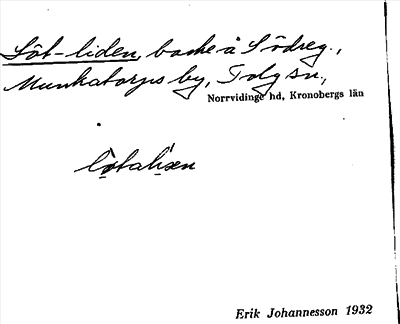 Löt-liden, backe å Södreg.,
Munkatorps by, Tolg sn.,
Norrvidinge hd, Kronobergs län
Erik Johannesson 1932